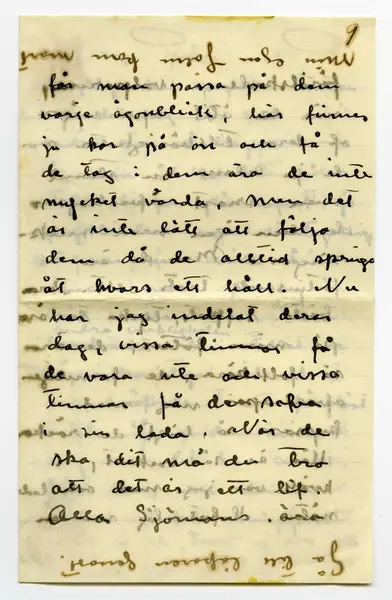 9
Min egen John kom snart
får man passa på dem
varje ögonblick, här finnes
ju kor på ön och få
de tag i dem äro de inte
mycket värda, men det
är inte lätt att följa
dem då de alltid springa
åt hvars ett håll. Nu
har jag indelat deras
dag, vissa timmar få
de vara ute och vissa
timmar få de sofva
i sin låda. När de
ska dit må du tro
att det är ett lif.
Alla Sjömans
Gå till